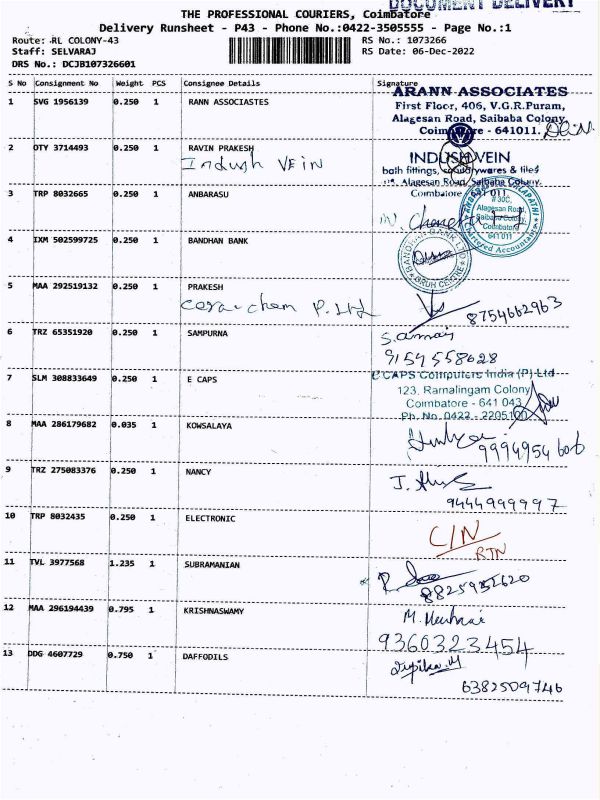 DOCUMENT DELIVERY
THE PROFESSIONAL COURIERS, Coimbatore
Delivery Runsheet - P43 - Phone No.:0422-3505555 - Page No.:1
Route: RL COLONY-43 RS No.: 1073266
Staff: SELVARAJ RS Date: 06-Dec-2022
DRS No.: DCJB107326601
S No Consignment No Weight PCS Consignee Details Signature
ARANN ASSOCIATES
1 SVG 1956139 0.250 1 RANN ASSOCIASTES
First Floor, 406, V.G.R.Puram,
Alagesan Road, Saibaba Colony,
Coimbatore - 641011.
2 OTY 3714493 0.250 1 RAVIN PRAKESH
Indush VEIN
INDUSH VEIN
bath fittings, sanitarywares & tiles
Alagesan Road, Saibaba Colony,
Coimbatore 641 011
3 TRP 8032665 0.250 1 ANBARASU
# 30C,
Alagesan Road,
Saibaba Colony,
Coimbatore
641 011
Chartered Accountants
4 IXM 502599725 0.250 1 BANDHAN BANK
BANDHAN BANK LTD
GRUH CENTRE
5 MAA 292519132 0.250 1 PRAKESH
Cera-chem P. Ltd
8754662963
6 TRZ 65351920 0.250 1 SAMPURNA
9154558628
7 SLM 308833649 0.250 1 E CAPS
E CAPS Computers India (P) Ltd
123, Ramalingam Colony
Coimbatore - 641 043
Ph. No. 0422 - 2205100
8 MAA 286179682 0.035 1 KOWSALAYA
9994954606
9 TRZ 275083376 0.250 1 NANCY
9444999997
10 TRP 8032435 0.250 1 ELECTRONIC
C/N
RTN
11 TVL 3977568 1.235 1 SUBRAMANIAN
12 MAA 296194439 0.795 1 KRISHNASWAMY
9360323454
13 DDG 4607729 0.750 1 DAFFODILS
6382509746